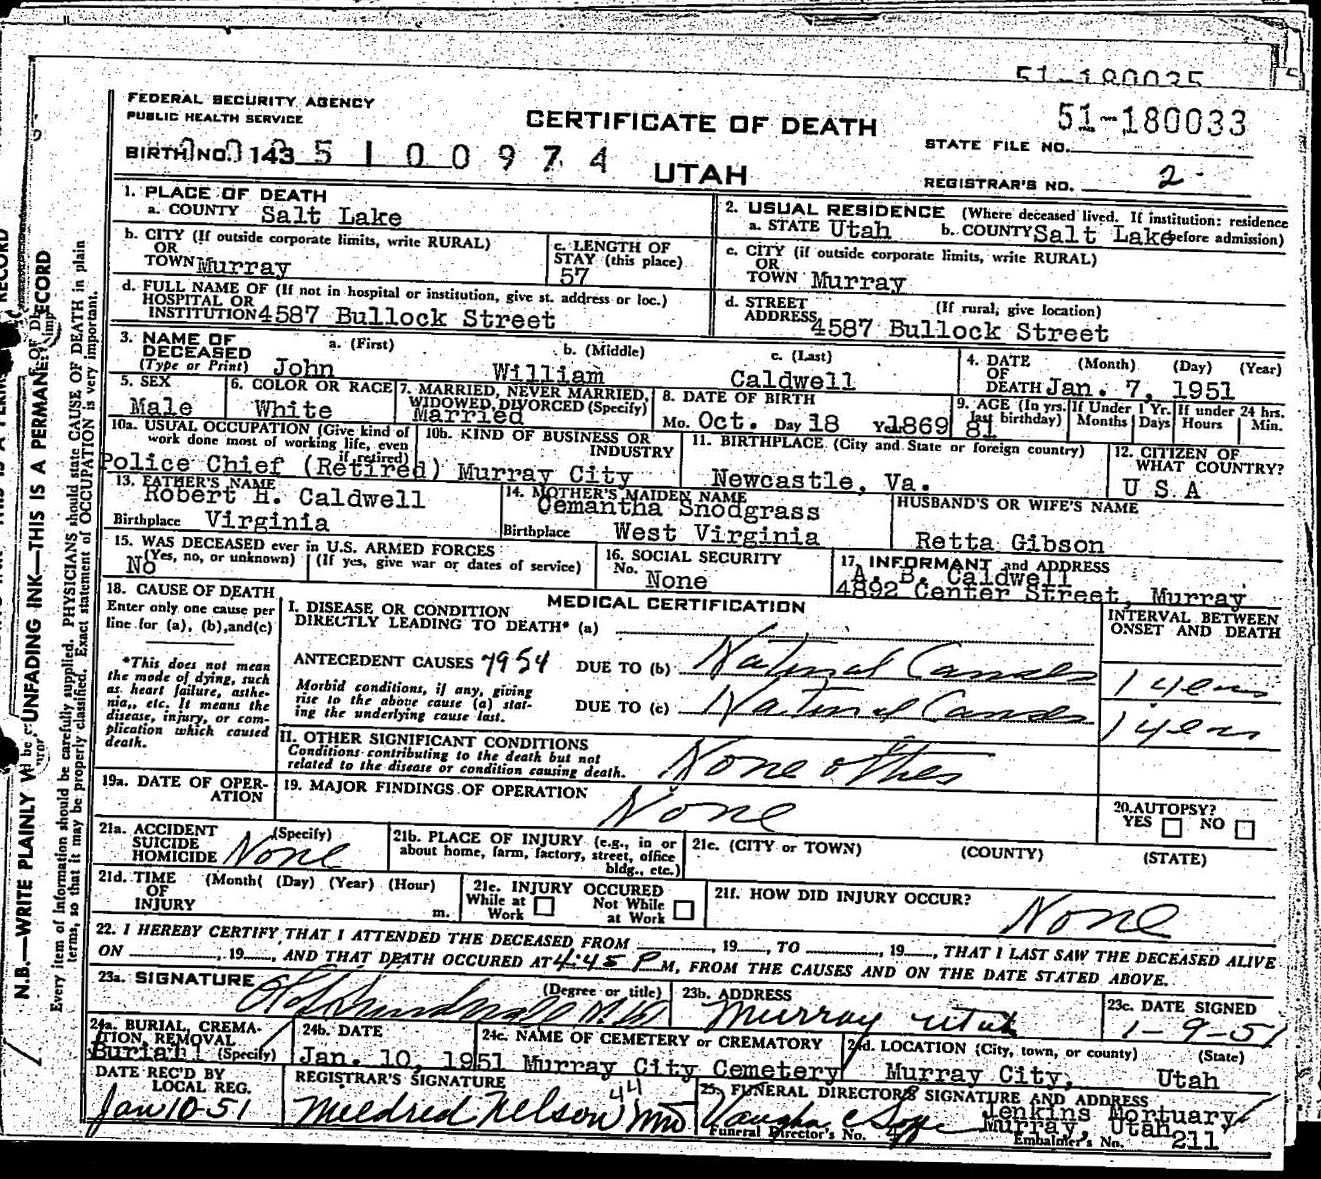 51-180035
FEDERAL SECURITY AGENCY
PUBLIC HEALTH SERVICE
CERTIFICATE OF DEATH
51-180033
STATE FILE NO.
BIRTH NO. 143 5 1 0 0 9 7 4
UTAH
REGISTRAR'S NO. 2
1. PLACE OF DEATH
a. COUNTY Salt Lake
2. USUAL RESIDENCE (Where deceased lived. If institution: residence before admission)
a. STATE Utah b. COUNTY Salt Lake
b. CITY (If outside corporate limits, write RURAL)
OR
TOWN Murray
c. LENGTH OF
STAY (this place)
57
c. CITY (if outside corporate limits, write RURAL)
OR
TOWN Murray
d. FULL NAME OF (If not in hospital or institution, give st. address or loc.)
HOSPITAL OR
INSTITUTION 4587 Bullock Street
d. STREET (If rural, give location)
ADDRESS 4587 Bullock Street
3. NAME OF
DECEASED
(Type or Print)
a. (First) b. (Middle) c. (Last)
John William Caldwell
4. DATE (Month) (Day) (Year)
OF
DEATH Jan. 7, 1951
5. SEX
Male
6. COLOR OR RACE
White
7. MARRIED, NEVER MARRIED,
WIDOWED, DIVORCED (Specify)
Married
8. DATE OF BIRTH
Mo. Oct. Day 18 Y. 1869
9. AGE (In yrs. last birthday) 81
If Under 1 Yr.
Months Days
If under 24 hrs.
Hours Min.
10a. USUAL OCCUPATION (Give kind of
work done most of working life, even
if retired)
Police Chief (Retired)
10b. KIND OF BUSINESS OR
INDUSTRY
Murray City
11. BIRTHPLACE (City and State or foreign country)
Newcastle, Va.
12. CITIZEN OF
WHAT COUNTRY?
U S A
13. FATHER'S NAME
Robert H. Caldwell
Birthplace Virginia
14. MOTHER'S MAIDEN NAME
Cemantha Snodgrass
Birthplace West Virginia
HUSBAND'S OR WIFE'S NAME
Retta Gibson
15. WAS DECEASED ever in U.S. ARMED FORCES
(Yes, no, or unknown) (If yes, give war or dates of service)
No
16. SOCIAL SECURITY
No. None
17. INFORMANT and ADDRESS
A. B. Caldwell
4892 Center Street, Murray
18. CAUSE OF DEATH
Enter only one cause per
line for (a), (b), and (c)
*This does not mean
the mode of dying, such
as heart failure, asthe-
nia,, etc. It means the
disease, injury, or com-
plication which caused
death.
MEDICAL CERTIFICATION
I. DISEASE OR CONDITION
DIRECTLY LEADING TO DEATH* (a)
INTERVAL BETWEEN
ONSET AND DEATH
ANTECEDENT CAUSES 7954 DUE TO (b) Natural Causes 1 year
Morbid conditions, if any, giving
rise to the above cause (a) stat-
ing the underlying cause last.
DUE TO (c) Natural Causes 1 year
II. OTHER SIGNIFICANT CONDITIONS
Conditions contributing to the death but not
related to the disease or condition causing death.
None other
19a. DATE OF OPER-
ATION
19. MAJOR FINDINGS OF OPERATION
None
20. AUTOPSY?
YES NO
21a. ACCIDENT (Specify)
SUICIDE
HOMICIDE None
21b. PLACE OF INJURY (e.g., in or
about home, farm, factory, street, office
bldg., etc.)
21c. (CITY or TOWN) (COUNTY) (STATE)
21d. TIME (Month( (Day) (Year) (Hour)
OF
INJURY m.
21e. INJURY OCCURED
While at Work Not While at Work
21f. HOW DID INJURY OCCUR?
None
22. I HEREBY CERTIFY THAT I ATTENDED THE DECEASED FROM , 19 , TO , 19 , THAT I LAST SAW THE DECEASED ALIVE
ON , 19 , AND THAT DEATH OCCURED AT 4:45 P M, FROM THE CAUSES AND ON THE DATE STATED ABOVE.
23a. SIGNATURE (Degree or title)
23b. ADDRESS
Murray Utah
23c. DATE SIGNED
1-9-51
24a. BURIAL, CREMA-
TION, REMOVAL
(Specify)
Burial
24b. DATE
Jan. 10, 1951
24c. NAME OF CEMETERY or CREMATORY
Murray City Cemetery
24d. LOCATION (City, town, or county) (State)
Murray City, Utah
DATE REC'D BY
LOCAL REG.
Jan 10-51
REGISTRAR'S SIGNATURE
Mildred Nelson 44
25. FUNERAL DIRECTOR'S SIGNATURE AND ADDRESS
Jenkins Mortuary
Murray, Utah
Funeral Director's No.
Embalmer's No. 211
N.B.—WRITE PLAINLY UNFADING INK—THIS IS A PERMANENT RECORD
Every item of information should be carefully supplied. PHYSICIANS should state CAUSE OF DEATH in plain
terms, so that it may be properly classified. Exact statement of OCCUPATION is very important.